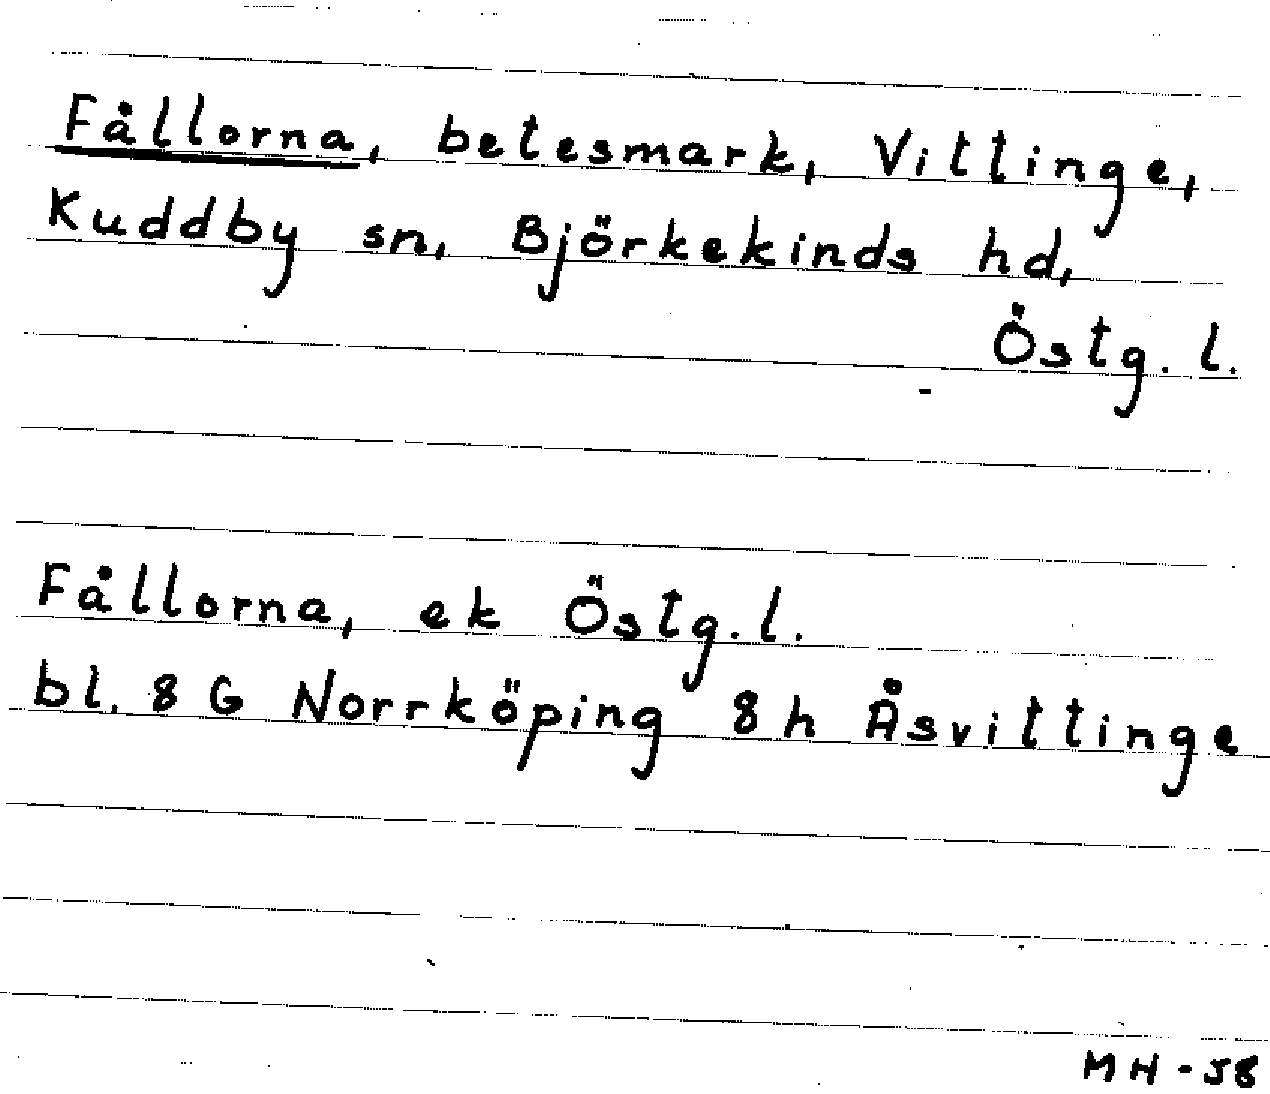 Fållorna, betesmark, Vittinge,
Kuddby sn, Björkekinds hd,
Östg. l.
Fållorna, ek Östg. l.
bl. 8 G Norrköping 8 h Åsvittinge
MH-58